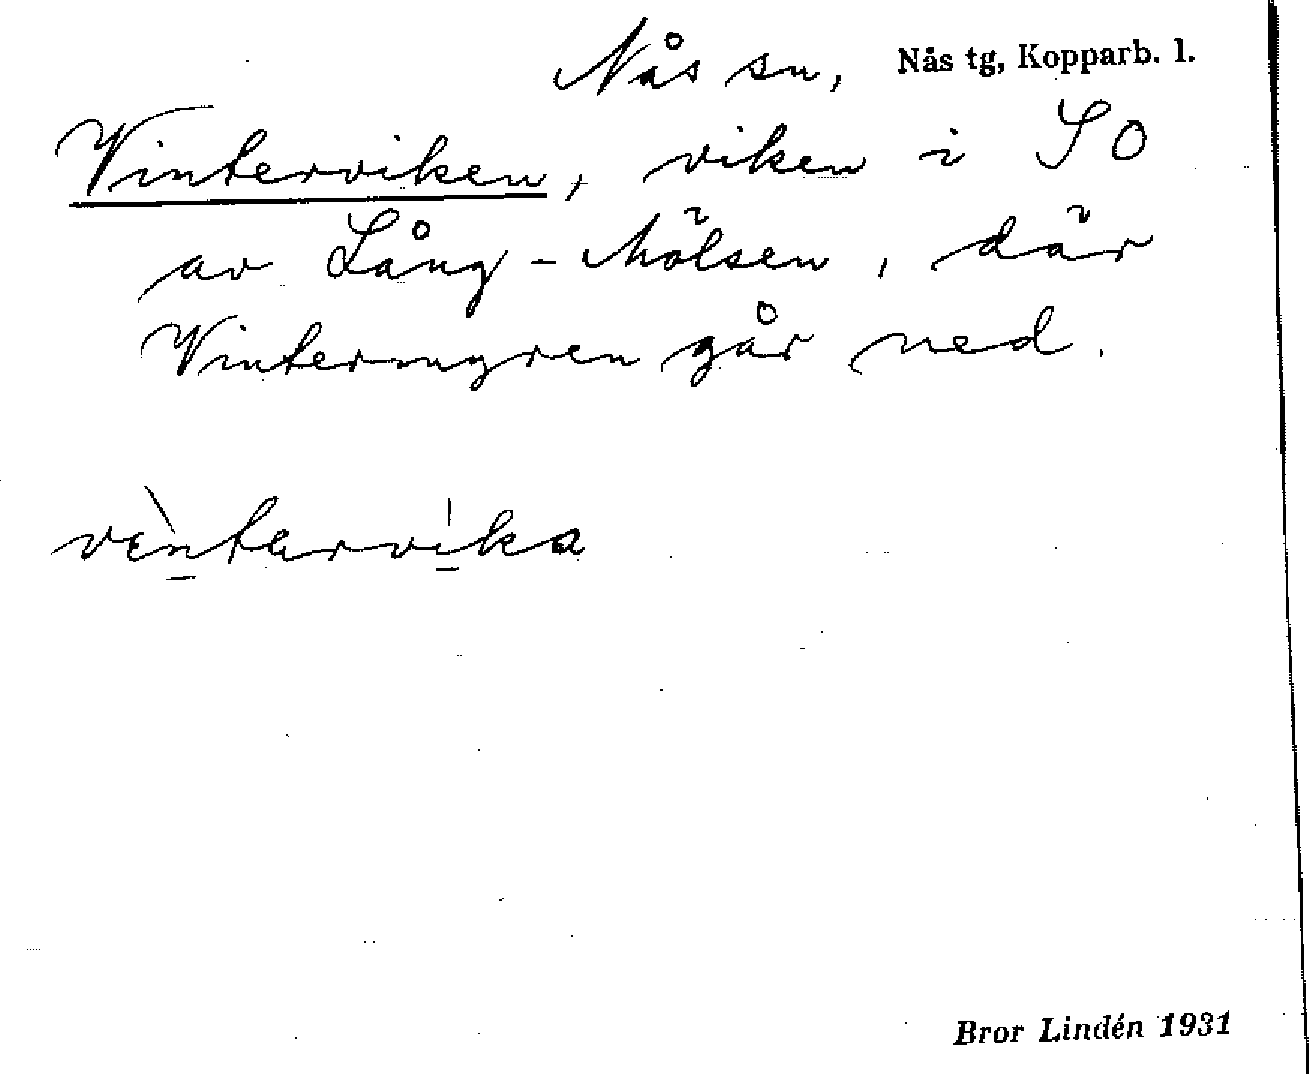 Nås sn, Nås tg, Kopparb. l.
Vinterviken, viken i SO
av Lång-Mölsen, där
Vintermyren går ned.
vèntərvika
Bror Lindén 1931